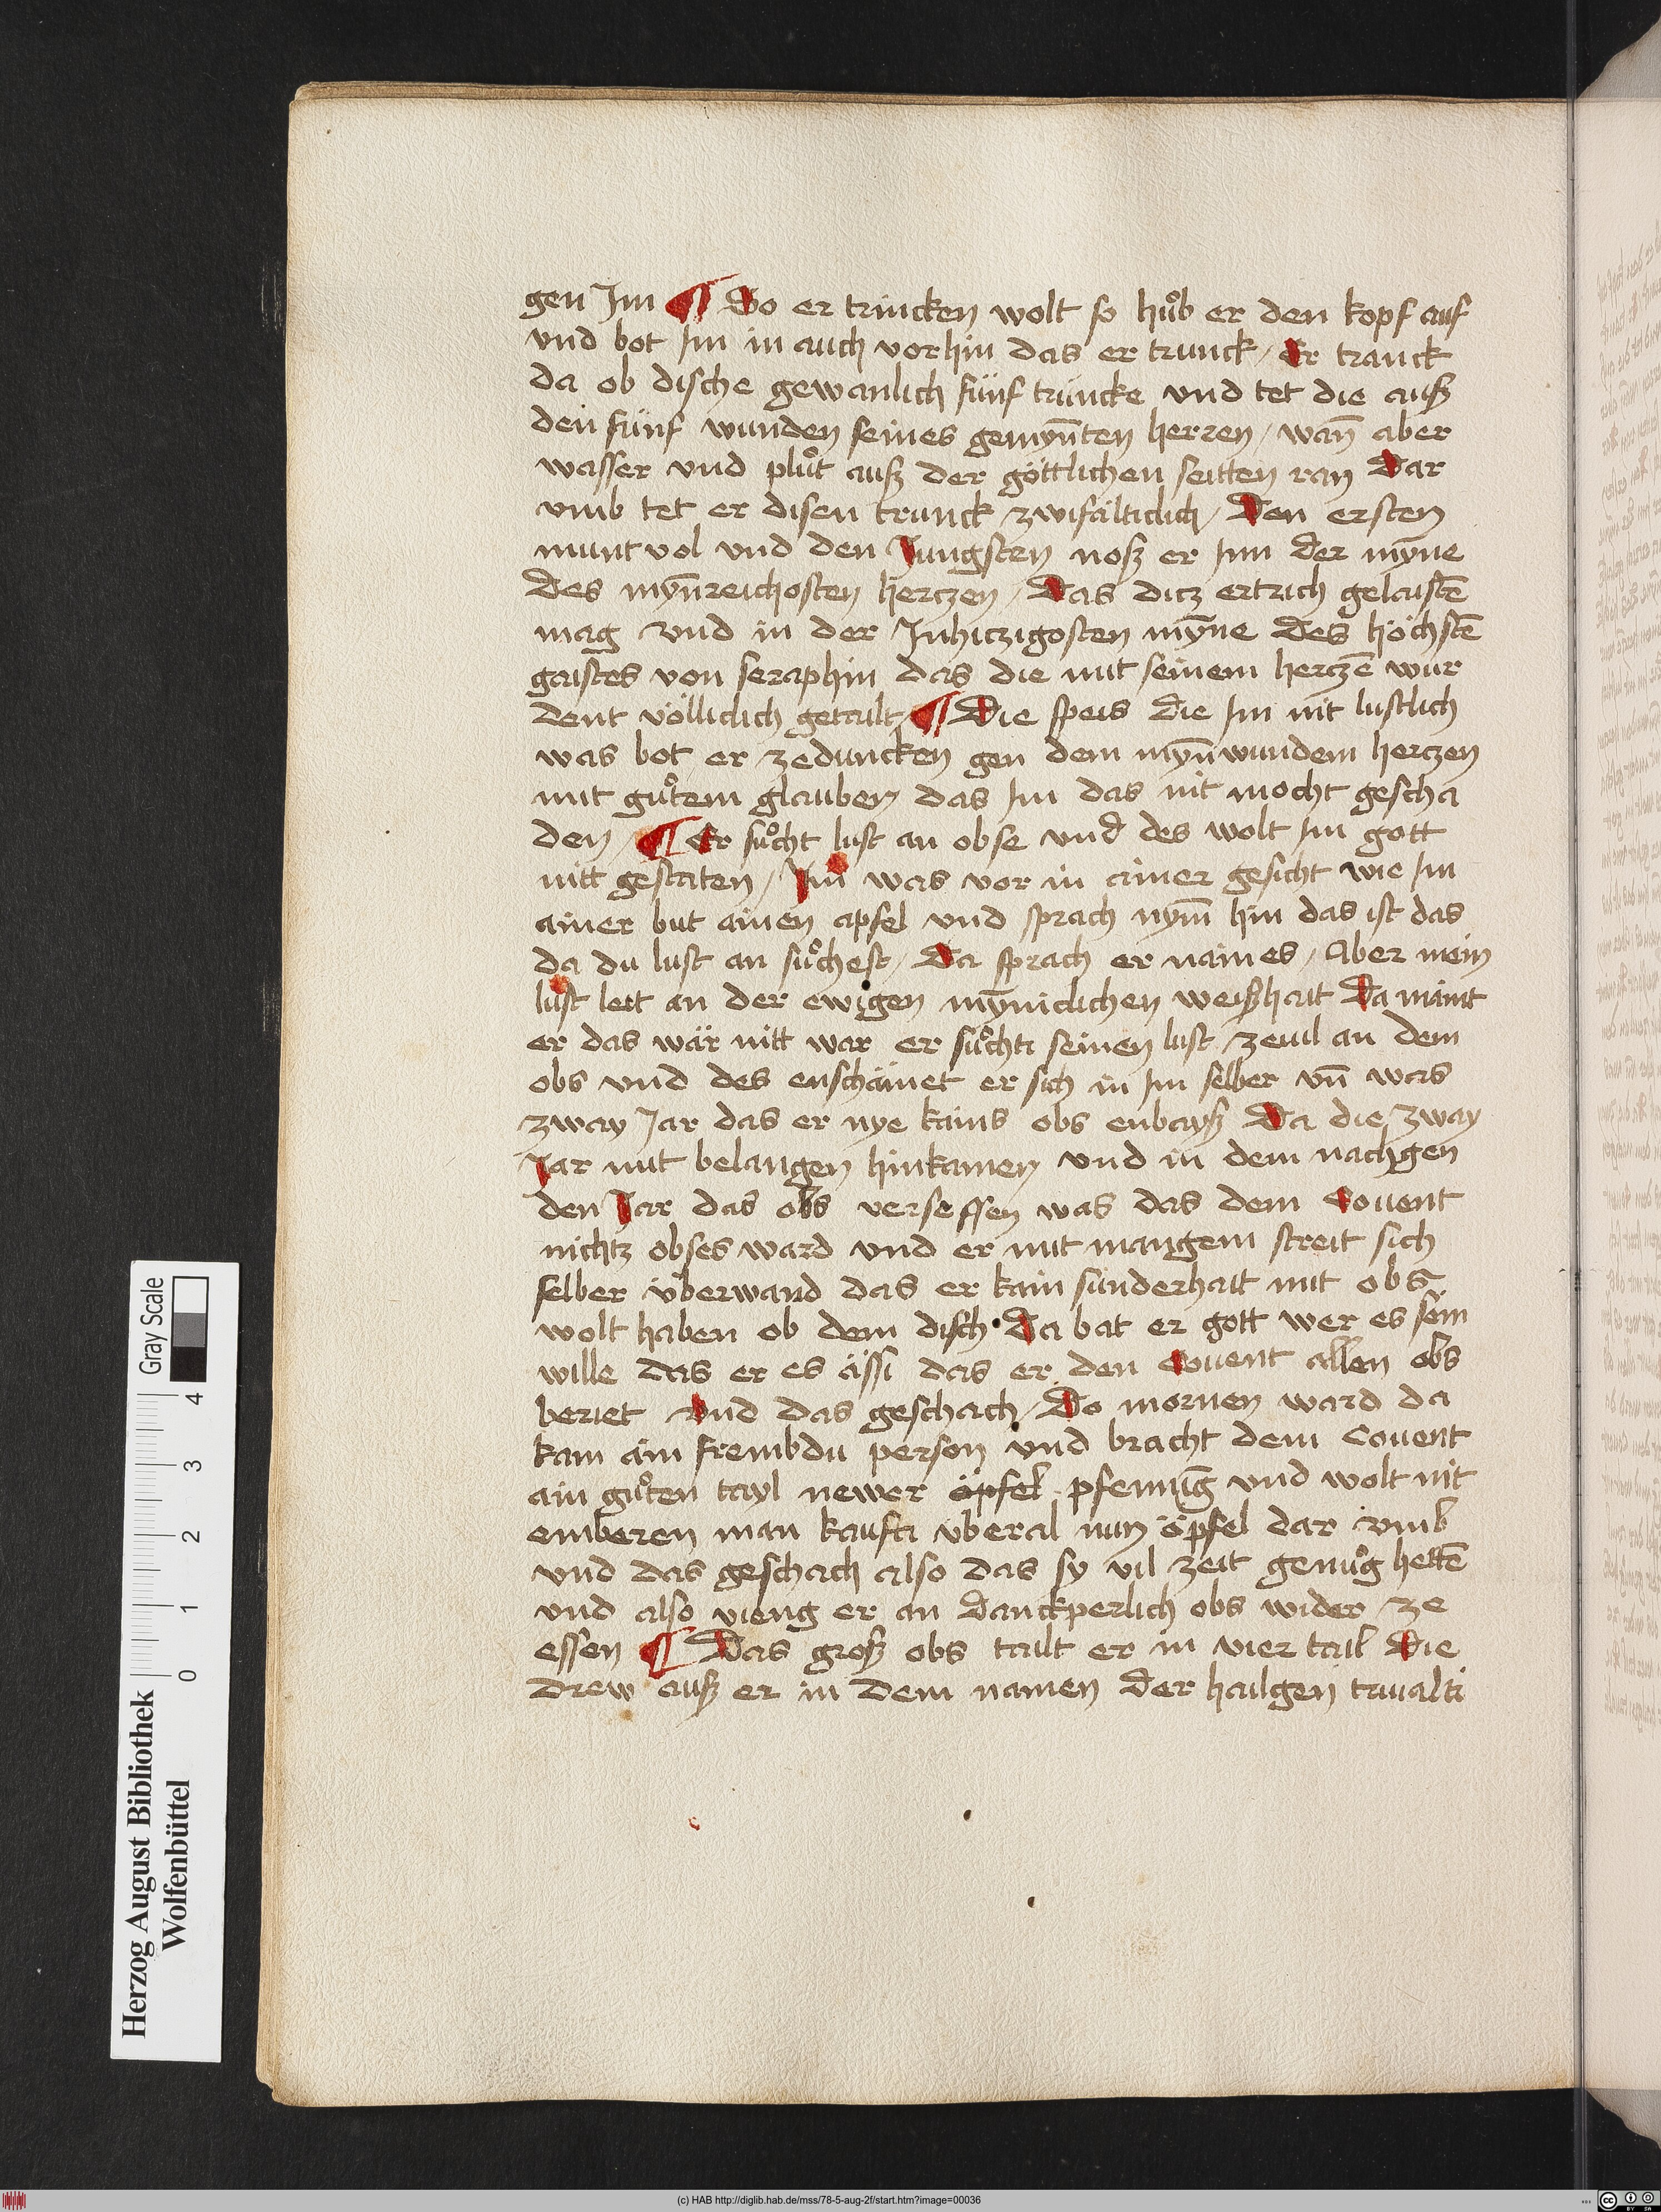 gen Im ¶ Do er trincken wolt so huͦb er den kopf auf
vnd bot Im in auch vorhin das er trunck / Er tranck
da ob dische gewanlich fünf trüncke vnd tet die auß
den fünf wunden seines gemyn̄ten herren / wan̄ aber
wasser vnd pluͦt auß der göttlichen seitten ran Dar
vmb tet er disen trunck zwifälticlich / Den ersten
munt vol vnd den Jungsten noß er Inn der myn̄e
des myn̄reichosten herczen / Das dicz ertrich gelaistē
mag vnd in der Inhiczigosten myn̄e des höchstē
gaistes von seraphin das die mit seinem herczē wur
dent völliclich getailt / ¶ Die speis die Im nit lustlich
was bot er zeduncken gen dem myn̄wundem herczen
mit guͦtem glauben das Im das nit mocht gescha
den / ¶ Er suͦcht lust an obse vnd des wolt Im gott
nitt gestaten / Im was vor in ainer gesicht wie Im
ainer but ainen apfel vnd sprach nym̄ hin das ist das
da du lust an suͦchest / Da sprach er nain es / Aber mein
lust leit an der ewigen myn̄iclichen weißhait Da maint
er das wär nitt war er suͦchti seinen lust ze uil an dem
obs vnd des enschämet er sich in Im selber vn̄ was
zway Jar das er nye kains obs enbayß Da die zway
Jar mit belangen hinkamen vnd in dem nachgen
den Jar das obs versessen was das dem Couent
nichtz obses ward vnd er mit mangem streit sich
selber überwand das er kain sunderhait mit obs
wolt haben ob dem disch · Da bat er gott wer es sein
wille das er es ässi das er den Couent allen obs
beriet vnd das geschach / Do mornen ward da
kam ain frembdu person vnd bracht dem Couent
ain guͦten tayl newer öpfel pfennig vnd wolt nit
emberen man kaufti überal nun öpfel dar vmb
vnd das geschach also das sy vil zeit genuͦg hettē
vnd also vieng er an danckperlich obs wider ze
essen ¶ Das groß obs tailt er in vier tail Die
drew auß er in dem namen der hailgen triualti
Herzog August Bibliothek
Wolfenbüttel
Gray Scale
0 1 2 3 4
(c) HAB http://diglib.hab.de/mss/78-5-aug-2f/start.htm?image=00036